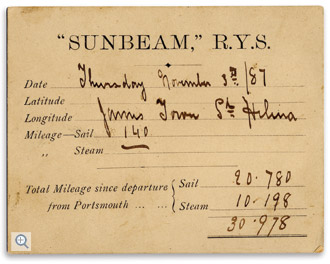 "SUNBEAM," R.Y.S.
Date Thursday November 3rd/87
Latitude
Longitude James Town St Helena
Mileage—Sail 140
„ Steam
Total Mileage since departure from Portsmouth ... ... { Sail 20.780
Steam 10.198
30.978